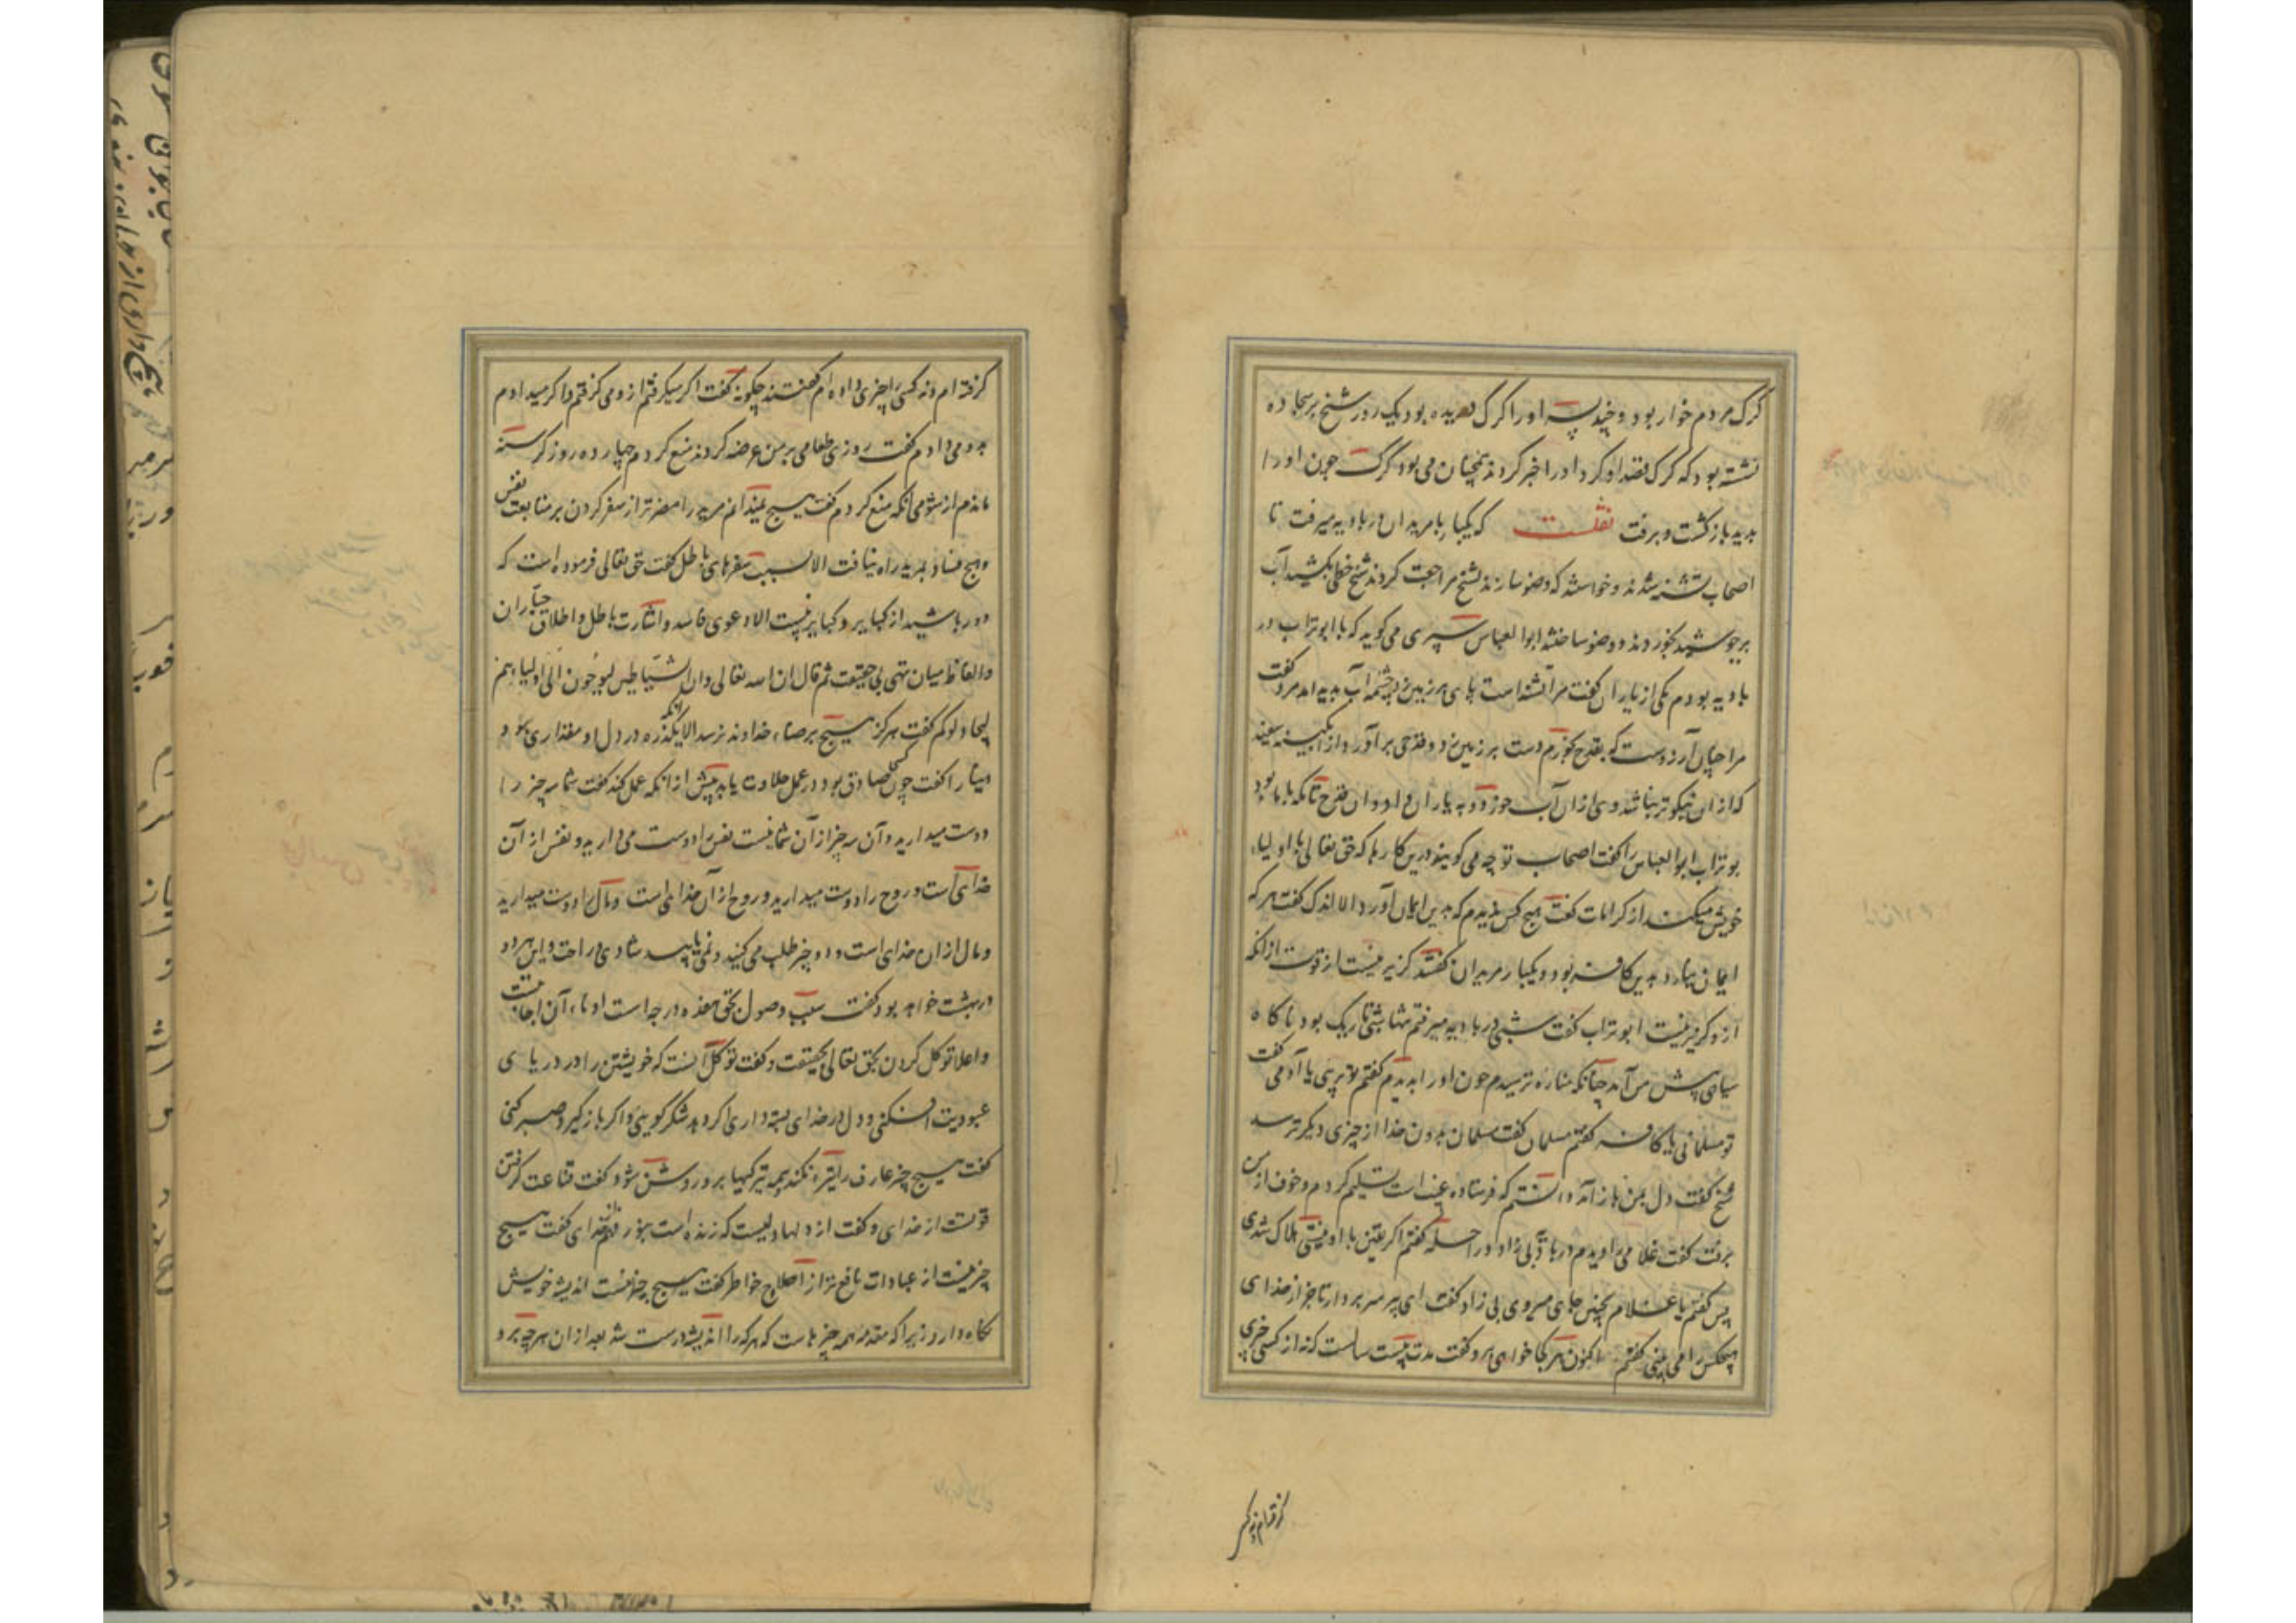 گرگ مردم خوار بود و چند پسر او را گرگ دریده بود یک روز شیخ بر سجاده
نشسته بود که گرگ قصد او کرد او را خبر کردند همچنان می بود گرگ چون او را
بدید بازگشت و برفت نقلست که یکبار با مریدان در بادیه میرفت تا
اصحاب تشنه شدند و خواستند که وضو سازند بشیخ مراجعت کردند شیخ خطی بکشید آب
برجوشید بخوردند و وضو ساختند ابوالعباس سیرمی می کوید که با ابوتراب در
بادیه بودم یکی از یاران گفت مرا تشنه است پای بر زمین زد چشمه آب پدید آمد مرد گفت
مرا چنان آرزوست که بقدح خورم دست بر زمین زد و قدحی برآورد از آبگینه سفید
که از ان نیکوتر نباشد وی از ان آب خورد و به یاران داد و ان قدح تا مکه با ما بود
بوتراب ابوالعباس را گفت اصحاب تو چه می گویند درین کارها که حق تعالی با اولیاء
خویش میکند از کرامات گفت هیچ کس ندیدم که بدین ایمان آورد الا اندک گفت هر که
ایمان نیارد بدین کافر بود و یکبار مریدان گفتند گزیر نیست از قوت از انکه
ازو گزیر نیست ابوتراب گفت شبی در بادیه میرفتم تنها شبی تاریک بود ناگاه
سیاهی پیش من آمد چنانکه مناره ترسیدم چون او را بدیدم گفتم تو پریی یا آدمی گفت
تو مسلمانی یا کافر گفتم مسلمان گفت مسلمان بدون خدا از چیزی دیگر ترسد
شیخ گفت دل بمن باز آمد دانستم که فرستاده غیب است تسلیم کردم و خوف از من
برفت گفت غلامی را دیدم در بادیه بی زاد و راحله گفتم اگر یقین با او نیستی هلاک شدی
پس گفتم یا غلام بچنین جای میروی بی زاد گفت ای پیر سر بردار تا جز از خدای
هیچکس را می بینی گفتم اکنون هر کجا خواهی برو گفت مدت بیست سالست که نه از کسی چیزی
گرفته ام و نه کسی
گرفته ام و نه کسی را چیزی داده ام گفتند چگونه گفت اگر میگرفتم از و می گرفتم و اگر میدادم
بدو می دادم گفت روزی طعامی بر من عرضه کردند منع کردم چهارده روز گرسنه
ماندم از شومی آنکه منع کردم گفت هیچ نمیدانم مرید را مضرتر از سفر کردن بر متابعت نفس
و هیچ فساد بمرید راه نیافت الا بسبب سفرهای باطل گفت حق تعالی فرموده است که
دور باشید از کبایر و کبایر نیست الا دعوی فاسد و اشارت باطل و اطلاق جباران
و الفاظ میان تهی بی حقیقت ثم قال ان الله تعالی وان الشیاطین لیوحون الی اولیاءهم
لیجادلوکم گفت هرگز هیچ برضاء خداوند نرسد الا آنکه یکذره در دل او مقداری بود
دنیا را گفت چون کسی صادق بود در عمل حلاوت یابد پیش از انکه عمل کند گفت شما سه چیز را
دوست میدارید و آن سه چیز از آن شما نیست نفس را دوست می دارید و نفس از آن
خدای است و روح را دوست میدارید و روح از آن خدای است و مال را دوست میدارید
و مال از ان خدای است و دو چیز طلب می کنید و نمی یابید شادی و راحت و این هر دو
در بهشت خواهد بود گفت سبب وصول بحق هفده درجه است ادناء آن اجابت
و اعلا توکل کردن بحق تعالی بحقیقت و گفت توکل آنست که خویشتن را در دریای
عبودیت افکنی و دل در خدای بسته داری اگر دهد شکر گویی و اگر باز گیرد صبر کنی
گفت هیچ چیز عارف را تیره نکند همه تیرگیها برو روشن شود گفت قناعت گرفتن
قوتست از خدای و گفت از دلها دلیست که زنده است بنور فهم خدای گفت هیچ
چیز نیست از عبادات نافع تر از اصلاح خواطر گفت هیچ چیز نیست اندیشه خویش
نگاه دارد زیرا که مقدمه همه چیزهاست که هر که را اندیشه درست شد بعد از ان هر چه برو